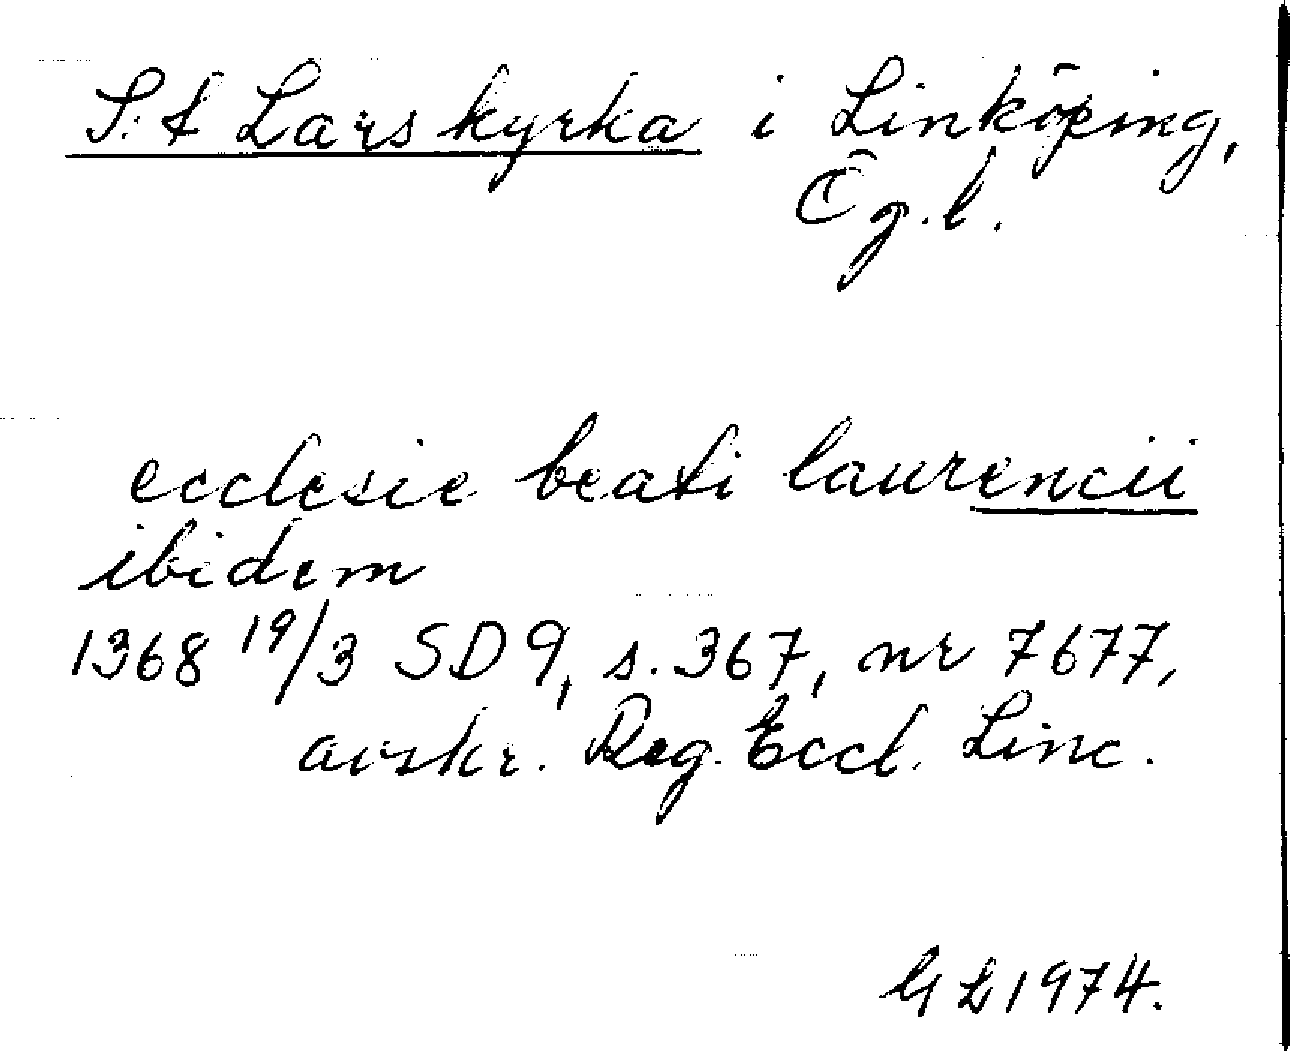 S:t Lars kyrka i Linköping,
Ög.l.
ecclesie beati laurencii
ibidem
1368 19/3 SD 9, s. 367, nr 7677,
avskr. Reg. Eccl. Linc.
GL 1974.